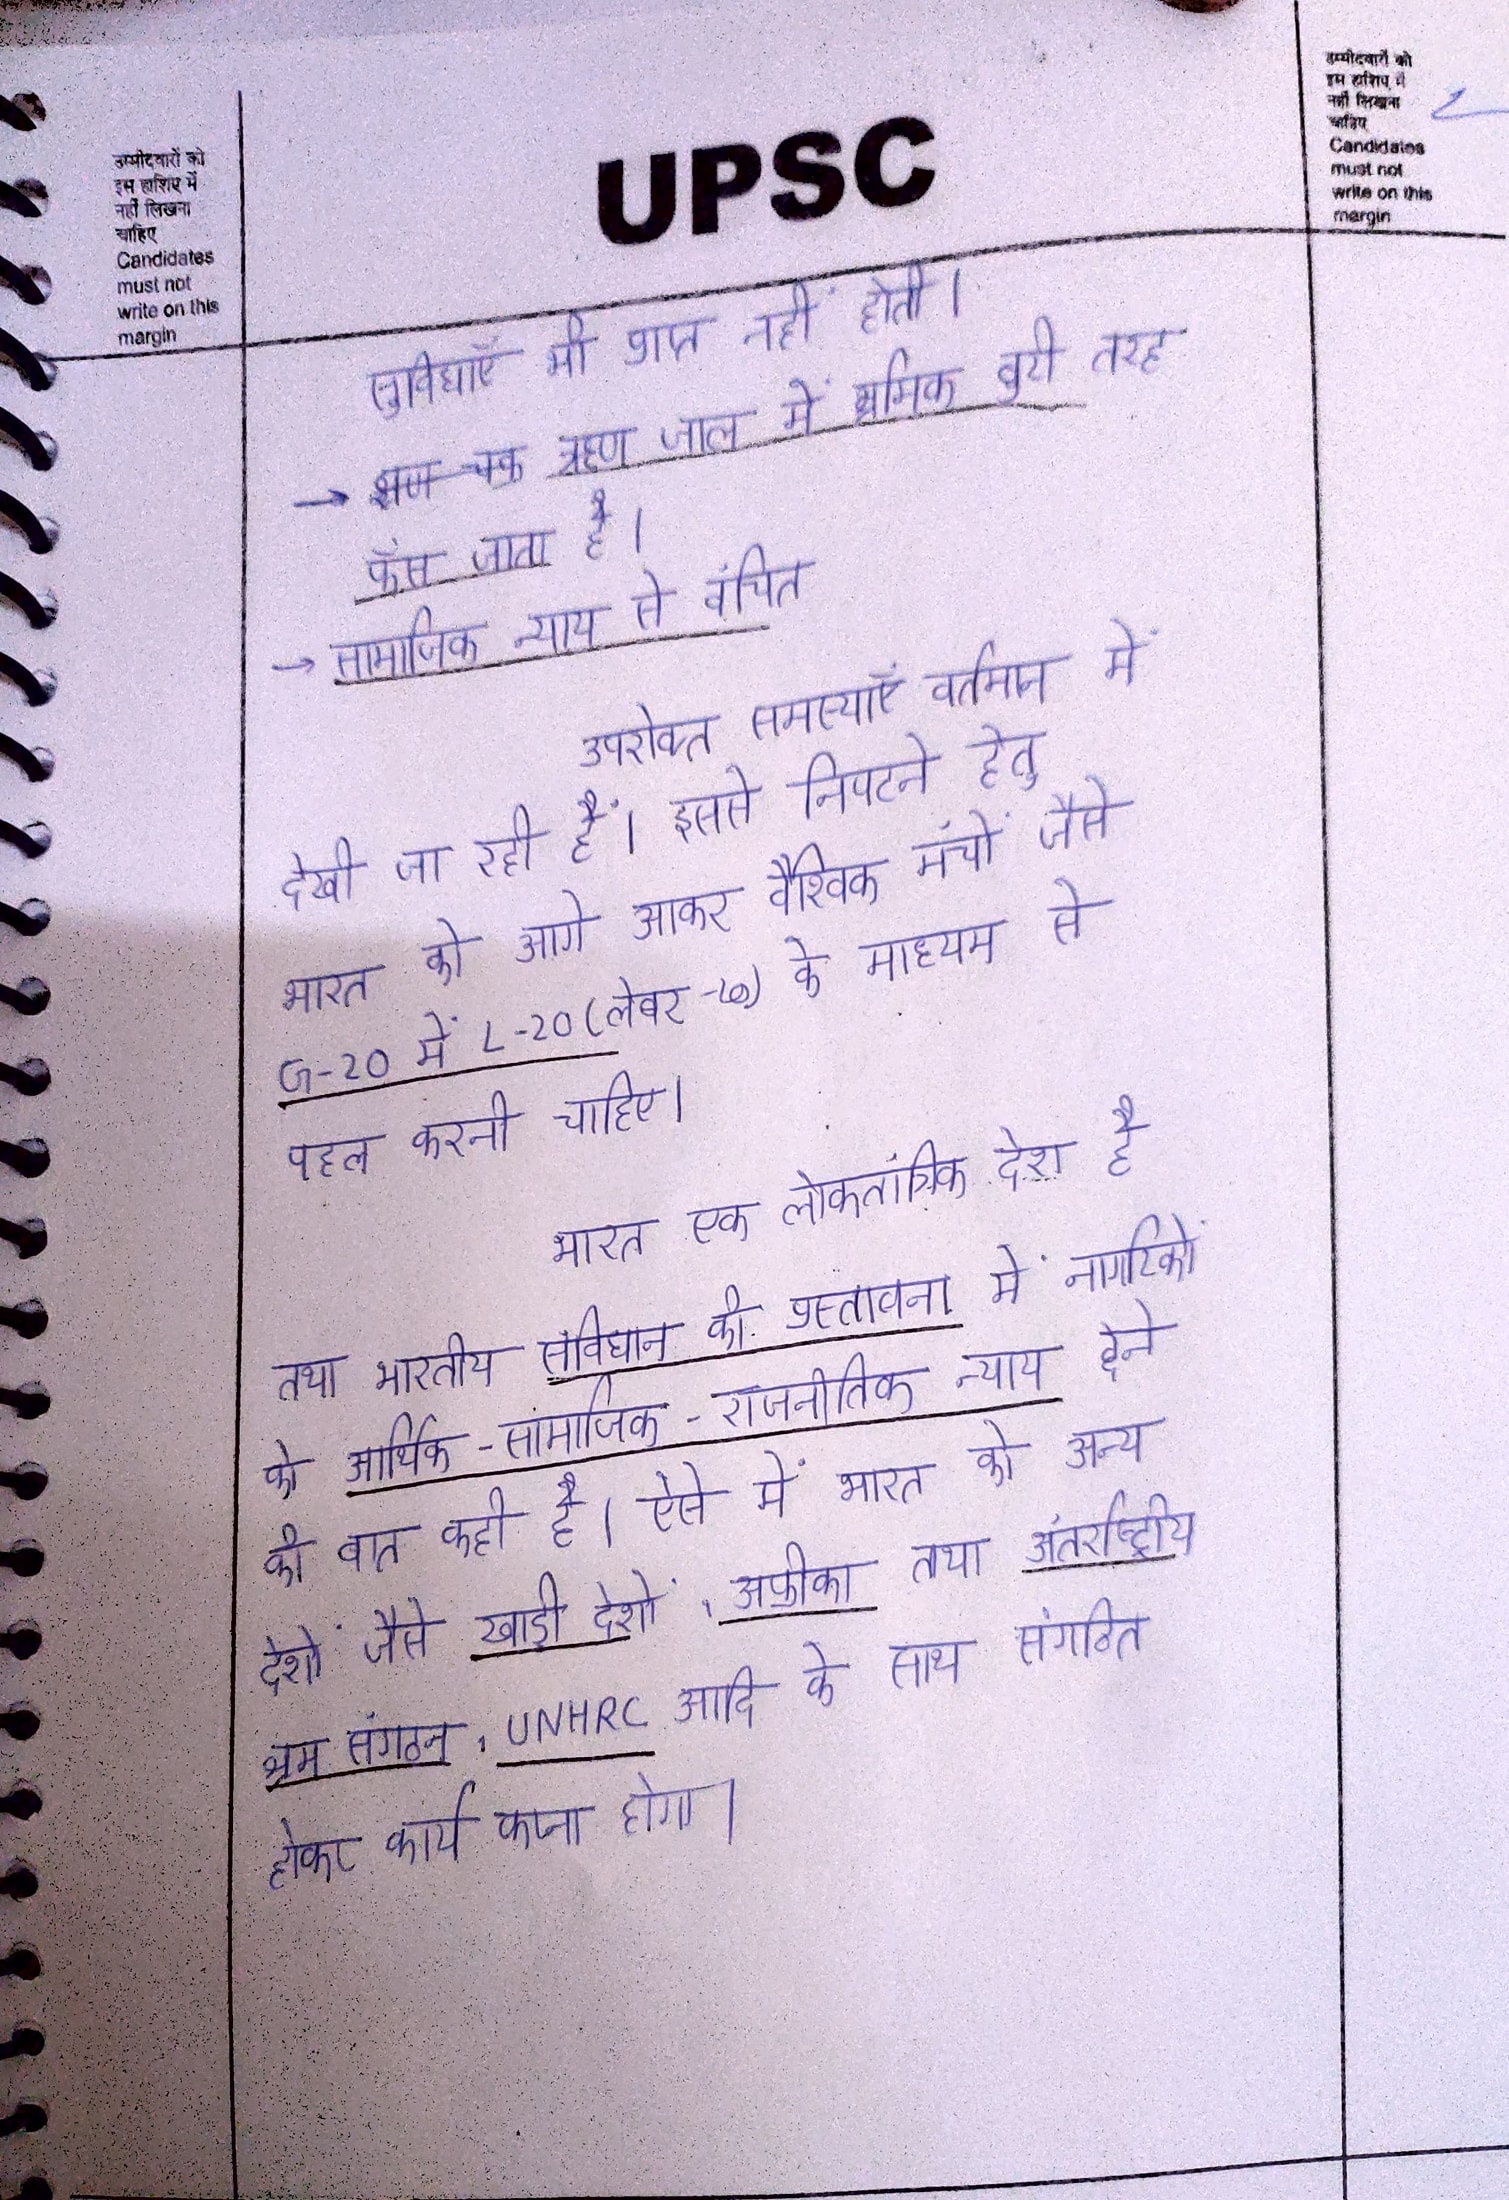 उम्मीदवारों को
इस हाशिए में
नहीं लिखना
चाहिए
Candidates
must not
write on this
margin
UPSC
उम्मीदवारों को
इस हाशिए में
नहीं लिखना
चाहिए
Candidates
must not
write on this
margin
सुविधाएँ भी प्राप्त नहीं होती।
→ ऋण जाल में श्रमिक बुरी तरह
फँस जाता है।
→ सामाजिक न्याय से वंचित
उपरोक्त समस्याएँ वर्तमान में
देखी जा रही हैं। इससे निपटने हेतु
भारत को आगे आकर वैश्विक मंचों जैसे
G-20 में L-20 (लेबर-20) के माध्यम से
पहल करनी चाहिए।
भारत एक लोकतांत्रिक देश है
तथा भारतीय संविधान की प्रस्तावना में नागरिकों
को आर्थिक - सामाजिक - राजनीतिक न्याय देने
की बात कही है। ऐसे में भारत को अन्य
देशों जैसे खाड़ी देशों, अफ्रीका तथा अंतर्राष्ट्रीय
श्रम संगठन, UNHRC आदि के साथ संगठित
होकर कार्य करना होगा।